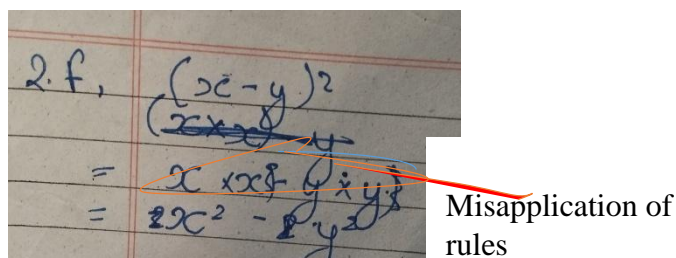 2.f, (x - y)²
= x × x - y × y
= x² - y²
Misapplication of
rules